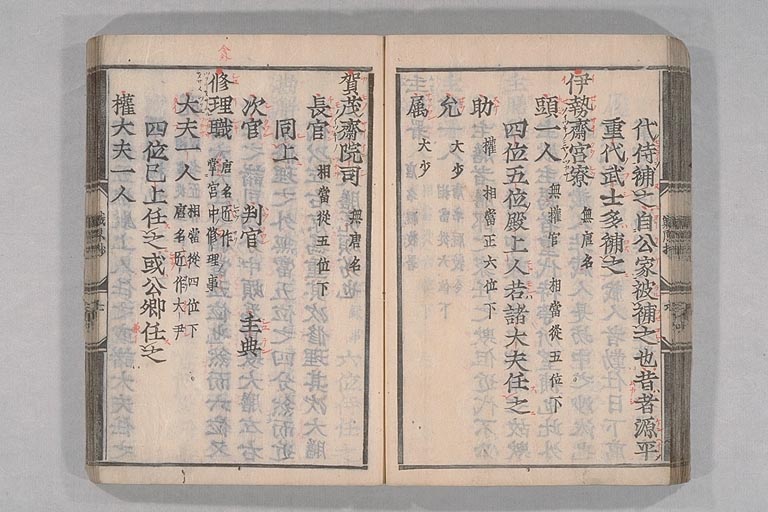 代侍補之自公家被補之也昔者源平
重代武士多補之
伊勢斎宮寮 無唐名
頭一人 無權官 相當從五位下
四位五位殿上人若諸大夫任之
助 權 相當正六位下
允 大少
属 大少
賀茂斎院司 無唐名
長官 相當從五位下
同上
次官 判官 主典
修理職 唐名匠作 掌宮中修理事
大夫一人 相當從四位下 唐名匠作大尹
四位已上任之或公卿任之
權大夫一人